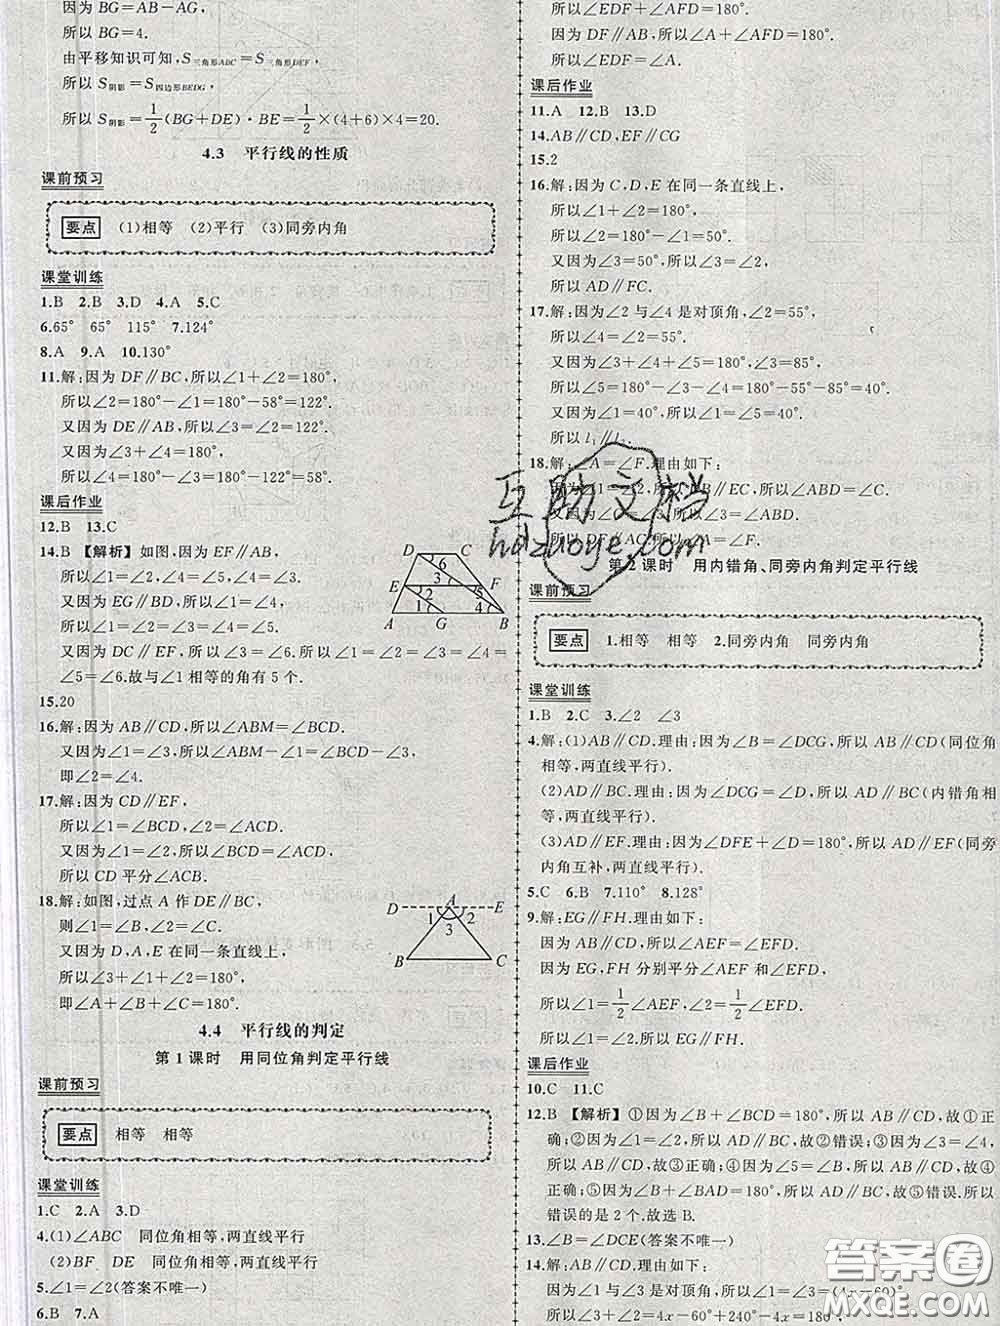 因为 BG=AB−AG,
所以 BG=4.
由平移知识可知, S三角形ABC=S三角形DEF,
所以 S阴影=S四边形BEDG,
所以 S阴影=1/2(BG+DE)·BE=1/2×(4+6)×4=20.
4.3 平行线的性质
课前预习
要点 (1)相等 (2)平行 (3)同旁内角
课堂训练
1.B 2.B 3.D 4.A 5.C
6.65° 65° 115° 7.124°
8.A 9.A 10.130°
11.解:因为 DF∥BC,所以∠1+∠2=180°,
所以∠2=180°−∠1=180°−58°=122°.
又因为 DE∥AB,所以∠3=∠2=122°.
又因为∠3+∠4=180°,
所以∠4=180°−∠3=180°−122°=58°.
课后作业
12.B 13.C
14.B 【解析】如图,因为 EF∥AB,
所以∠1=∠2,∠3=∠4.
又因为 EG∥BD,所以∠1=∠3.
又因为∠4=∠5,所以∠1=∠5.
又因为 DC∥EF,所以∠3=∠6.所以∠1=∠2=∠3=∠4=
∠5=∠6.故与∠1相等的角有 5 个.
D C
6
E F
2 3
1 5 4
A G B
15.20
16.解:因为 AB∥CD,所以∠ABM=∠BCD.
又因为∠1=∠3,所以∠ABM−∠1=∠BCD−∠3,
即∠2=∠4.
17.解:因为 CD∥EF,
所以∠1=∠BCD,∠2=∠ACD.
又因为∠1=∠2,所以∠BCD=∠ACD.
所以 CD 平分∠ACB.
18.解:如图,过点 A 作 DE∥BC,
则∠1=∠B,∠2=∠C.
又因为 D,A,E 在同一条直线上,
所以∠3+∠1+∠2=180°,
即∠A+∠B+∠C=180°.
D A E
1 2
3
B C
4.4 平行线的判定
第 1 课时 用同位角判定平行线
课前预习
要点 相等 相等
课堂训练
1.C 2.A 3.D
4.(1)∠ABC 同位角相等,两直线平行
(2)BF DE 同位角相等,两直线平行
5.∠1=∠2(答案不唯一)
6.B 7.A
所以∠EDF+∠AFD=180°.
因为 DF∥AB,所以∠A+∠AFD=180°.
所以∠EDF=∠A.
课后作业
11.A 12.B 13.D
14.AB∥CD,EF∥CG
15.2
16.解:因为 C,D,E 在同一条直线上,
所以∠1+∠2=180°,
所以∠2=180°−∠1=50°.
又因为∠3=50°,所以∠2=∠3,
所以 AD∥FC.
17.解:因为∠2与∠4是对顶角,∠2=55°,
所以∠4=∠2=55°.
又因为∠3+∠4+∠5=180°,∠3=85°,
所以∠5=180°−∠3−∠4=180°−85°−55°=40°.
又因为∠1=40°,所以∠1=∠5=40°.
所以 l₁∥l₂.
18.解:∠A=∠F.理由如下:
因为∠1=∠2,所以 DB∥EC,所以∠ABD=∠C.
因为∠C=∠3,所以∠3=∠ABD.
所以 DF∥AC,所以∠A=∠F.
第 2 课时 用内错角、同旁内角判定平行线
课前预习
要点 1.相等 相等 2.同旁内角 同旁内角
课堂训练
1.B 2.C 3.∠2 ∠3
4.解:(1)AB∥CD.理由:因为∠B=∠DCG,所以AB∥CD(同位角
相等,两直线平行).
(2)AD∥BC.理由:因为∠DCG=∠D,所以 AD∥BC(内错角相
等,两直线平行).
(3)AD∥EF.理由:因为∠DFE+∠D=180°,所以AD∥EF(同旁
内角互补,两直线平行).
5.C 6.B 7.110° 8.128°
9.解:EG∥FH.理由如下:
因为AB∥CD,所以∠AEF=∠EFD.
因为 EG,FH 分别平分∠AEF 和∠EFD,
所以∠1=1/2∠AEF,∠2=1/2∠EFD.
所以∠1=∠2.所以 EG∥FH.
课后作业
10.C 11.C
12.B 【解析】①因为∠B+∠BCD=180°,所以 AB∥CD,故①
正确;②因为∠1=∠2,所以 AD∥BC,故②错误;③因为∠3=∠4,
所以 AB∥CD,故③正确;④因为∠5=∠B,所以 AB∥CD,故④
正确;⑤因为∠B+∠BAD=180°,所以 AD∥BC,故⑤错误.所以
错误的是 2 个.故选 B.
13.∠B=∠DCE(答案不唯一)
14.解:因为∠1与∠3是对顶角,所以∠1=∠3=(4x−60)°.
所以∠3+∠2=4x−60°+240°−4x=180°
互助文档
hdzuoye.com
答案圈
MXQE.COM